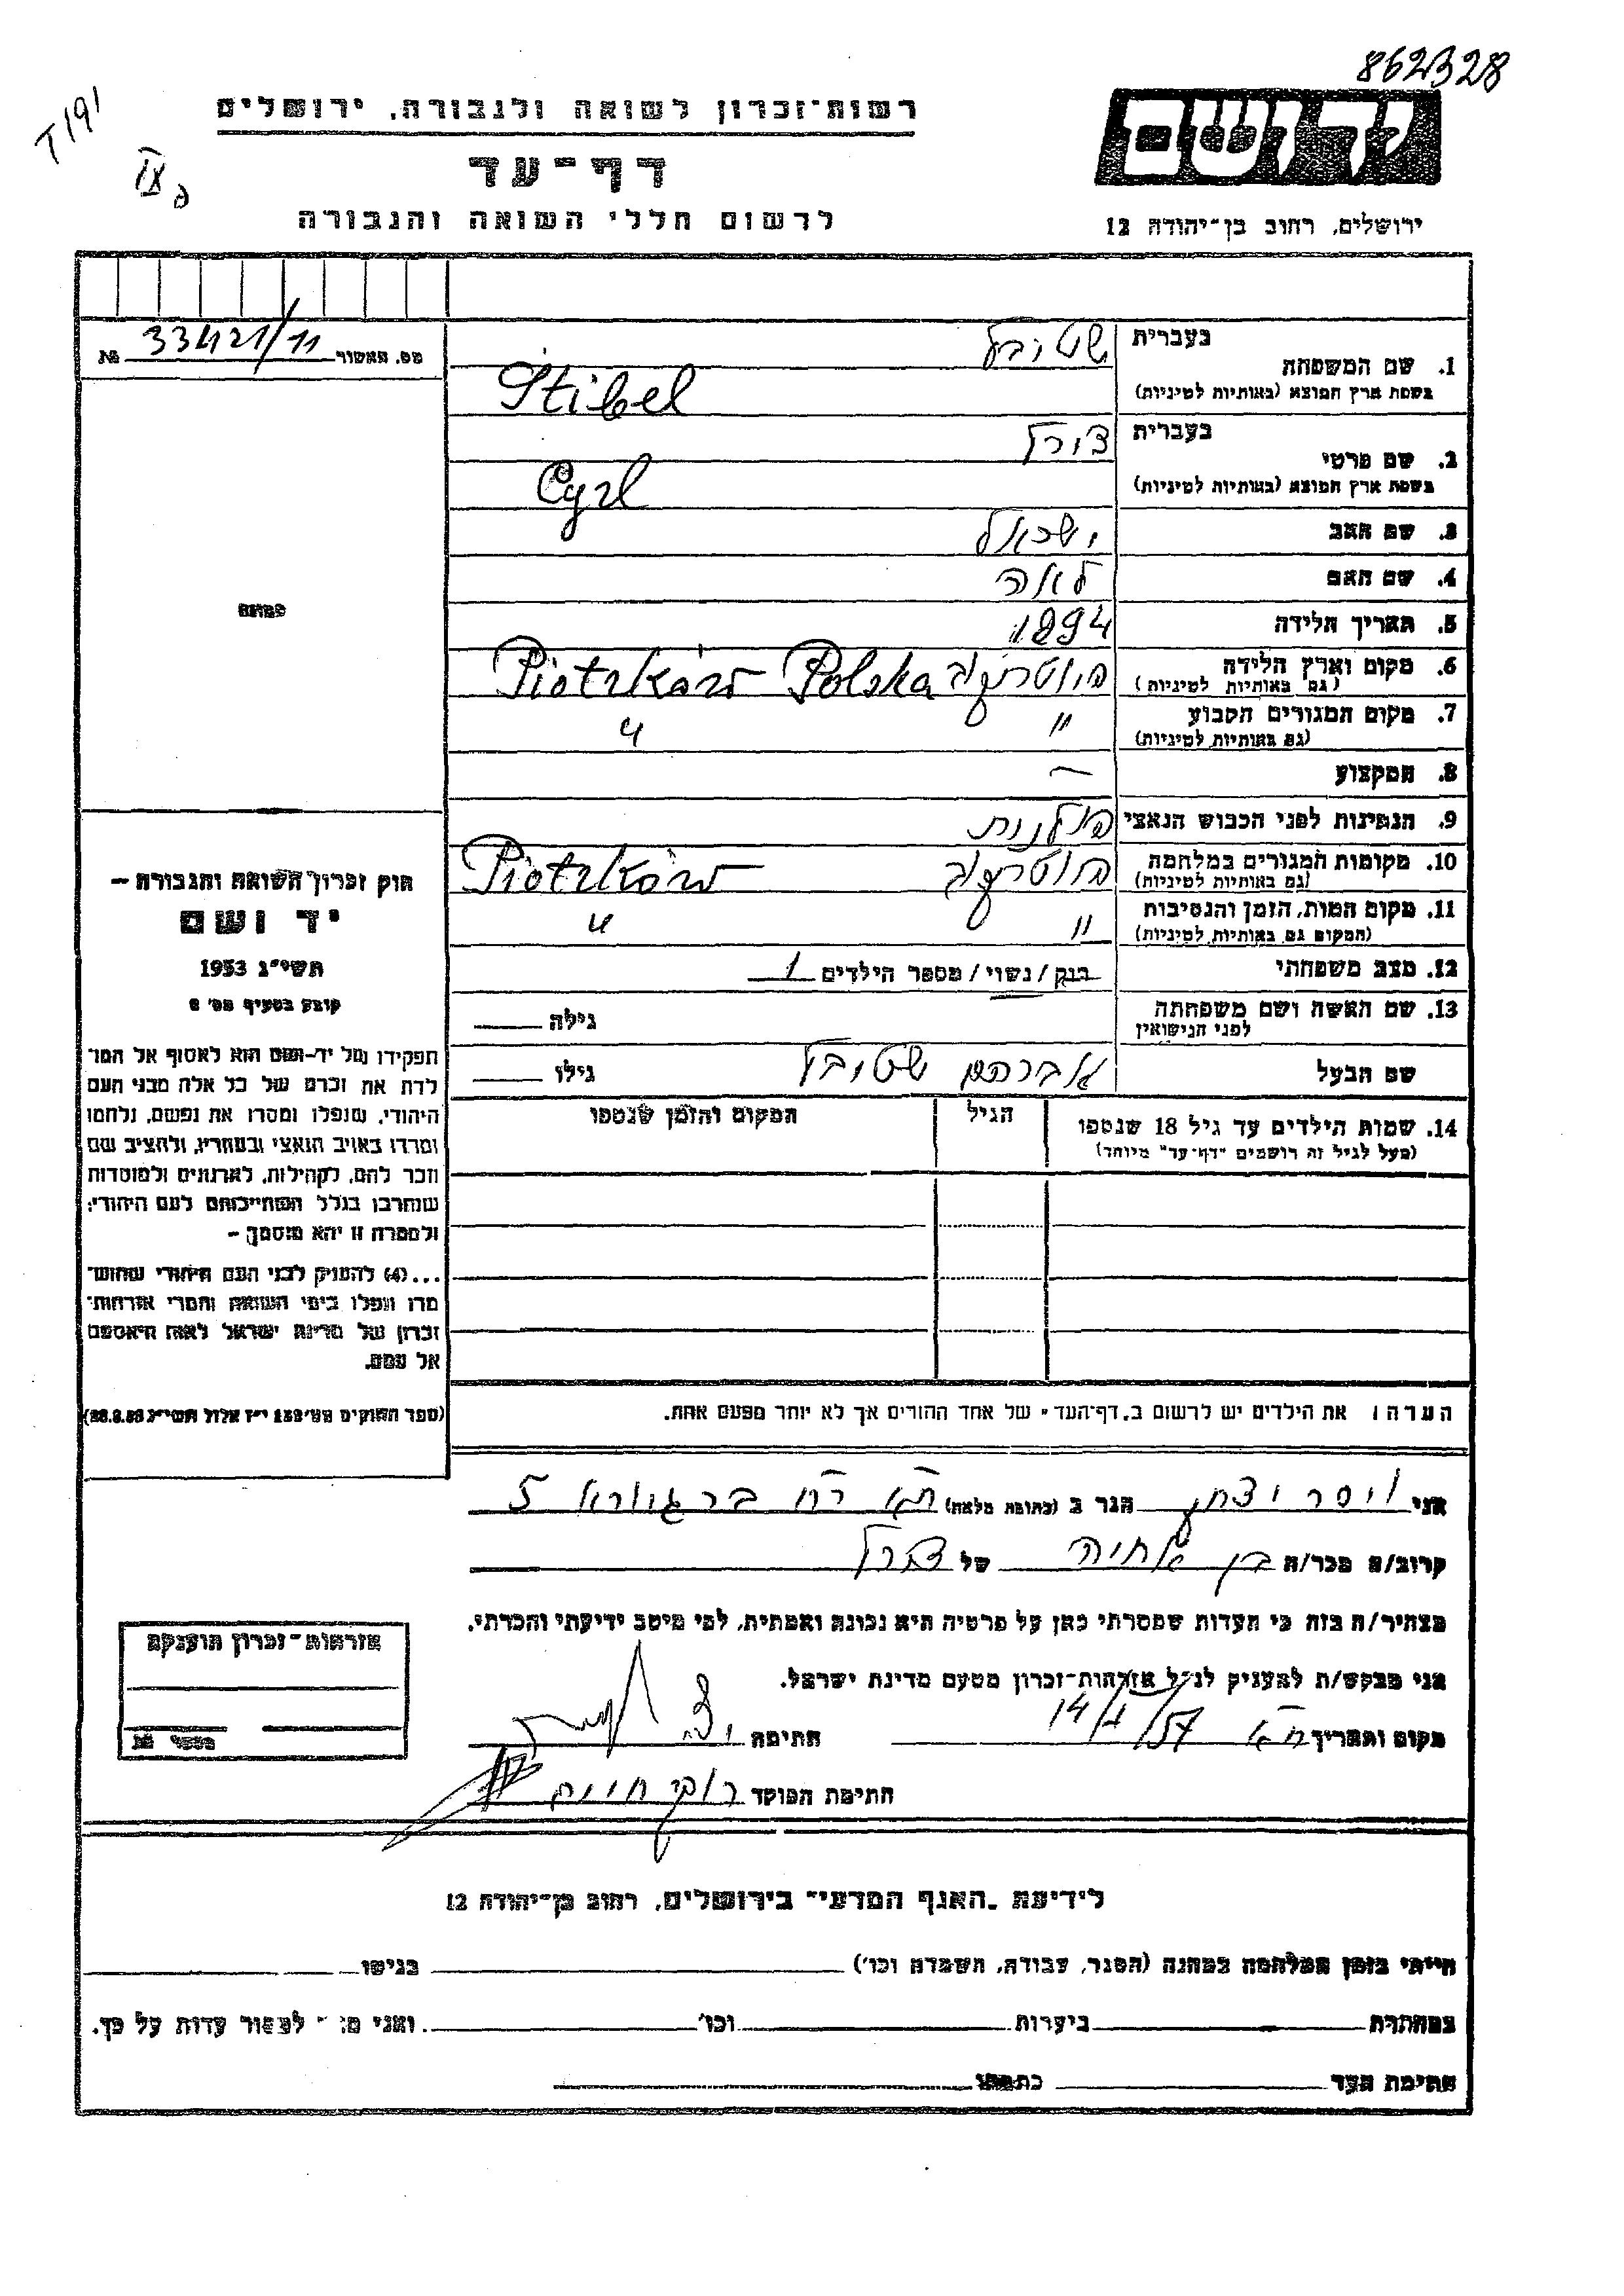 862328
T191
רשות־זכרון לשואה ולגבורה, ירושלים
יד ושם
דף־עד
לרשום חללי השואה והגבורה
ירושלים, רחוב בן־יהודה 12
מס. האשור 33421/11 №
בעברית שטיבל
1. שם המשפחה
בשפת ארץ המוצא (באותיות לטיניות) Stibel
בעברית צירל
2. שם פרטי
בשפת ארץ המוצא (באותיות לטיניות) Cyrl
3. שם האב ישראל
4. שם האם לאה
5. תאריך הלידה 1894
6. מקום וארץ הלידה פיוטרקוב Piotrków Polska
(גם באותיות לטיניות)
7. מקום המגורים הקבוע " "
(גם באותיות לטיניות)
8. המקצוע —
9. הנתינות לפני הכבוש הנאצי פולנית
10. מקומות המגורים במלחמה פיוטרקוב Piotrków
(גם באותיות לטיניות)
11. מקום המות, הזמן והנסיבות " "
(המקום גם באותיות לטיניות)
12. מצב משפחתי רוק / נשוי / מספר הילדים 1
13. שם האשה ושם משפחתה גילה
לפני הנישואין
שם הבעל אברהם שטיבל גילו
14. שמות הילדים עד גיל 18 שנספו הגיל המקום והזמן שנספו
(מעל לגיל זה רושמים "דף־עד" מיוחד)
תמונה
חוק זכרון השואה והגבורה –
יד ושם
תשי"ג 1953
קובע בסעיף מס'
תפקידו של יד-ושם הוא לאסוף אל המו־
לדת את זכרם של כל אלה מבני העם
היהודי, שנפלו ומסרו את נפשם, נלחמו
ומרדו באויב הנאצי ובעוזריו, ולהציב שם
וזכר להם, לקהילות, לארגונים ולמוסדות
שנחרבו בגלל השתייכותם לעם היהודי;
ולמטרה זו יהא מוסמך –
...(4) להעניק לבני העם היהודי שהוש־
מדו ונפלו בימי השואה והמרי אזרחות־
זכרון של מדינת ישראל לאות היאספם
אל עמם.
(ספר החוקים מס' 132 י"ז אלול תשי"ג 28.8.53)
הערה: את הילדים יש לרשום ב"דף־העד" של אחד ההורים אך לא יותר מפעם אחת.
אני ויסר יצחק הגר ב (כתובת מלאה) ת"א רח בר גיורא 5
קרוב/ה מכר/ה בן אחיה של צירל
מצהיר/ה בזה כי העדות שמסרתי כאן על פרטיה היא נכונה ואמתית, לפי מיטב ידיעתי והכרתי.
אני מבקש/ת להעניק לנ"ל אזרחות־זכרון מטעם מדינת ישראל.
מקום ותאריך ת"א 14/ /57 חתימה יצ.
חתימת הפוקד
אזרחות־זכרון הוענקה
מספר №
לידיעת "האגף המדעי" בירושלים, רחוב בן־יהודה 12
הייתי בזמן המלחמה במחנה (הסגר, עבודה, השמדה וכו') בגיטו
במחתרת ביערות וכו' ואני לעסור עדות על כך.
חתימת העד כתבתו